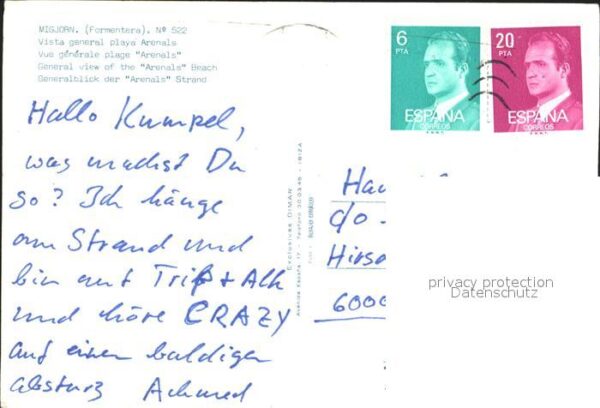 MIGJORN. (Formentera). Nº 522
Vista general playa Arenals
Vue générale plage "Arenals"
General view of the "Arenals" Beach
Generalblick der "Arenals" Strand
6
PTA
ESPAÑA
CORREOS
20
PTA
ESPAÑA
CORREOS
Hallo Kumpel,
was machst Du
so? Ich hänge
am Strand und
bin auf Trip + Alk
und höre CRAZY
auf einen baldigen
Absturz Achmed
Exclusivas DIMAR
Avenida España, 17 - Teléfono 30.03.45 - IBIZA
Hau
c/o
Hirs
6000
privacy protection
Datenschutz